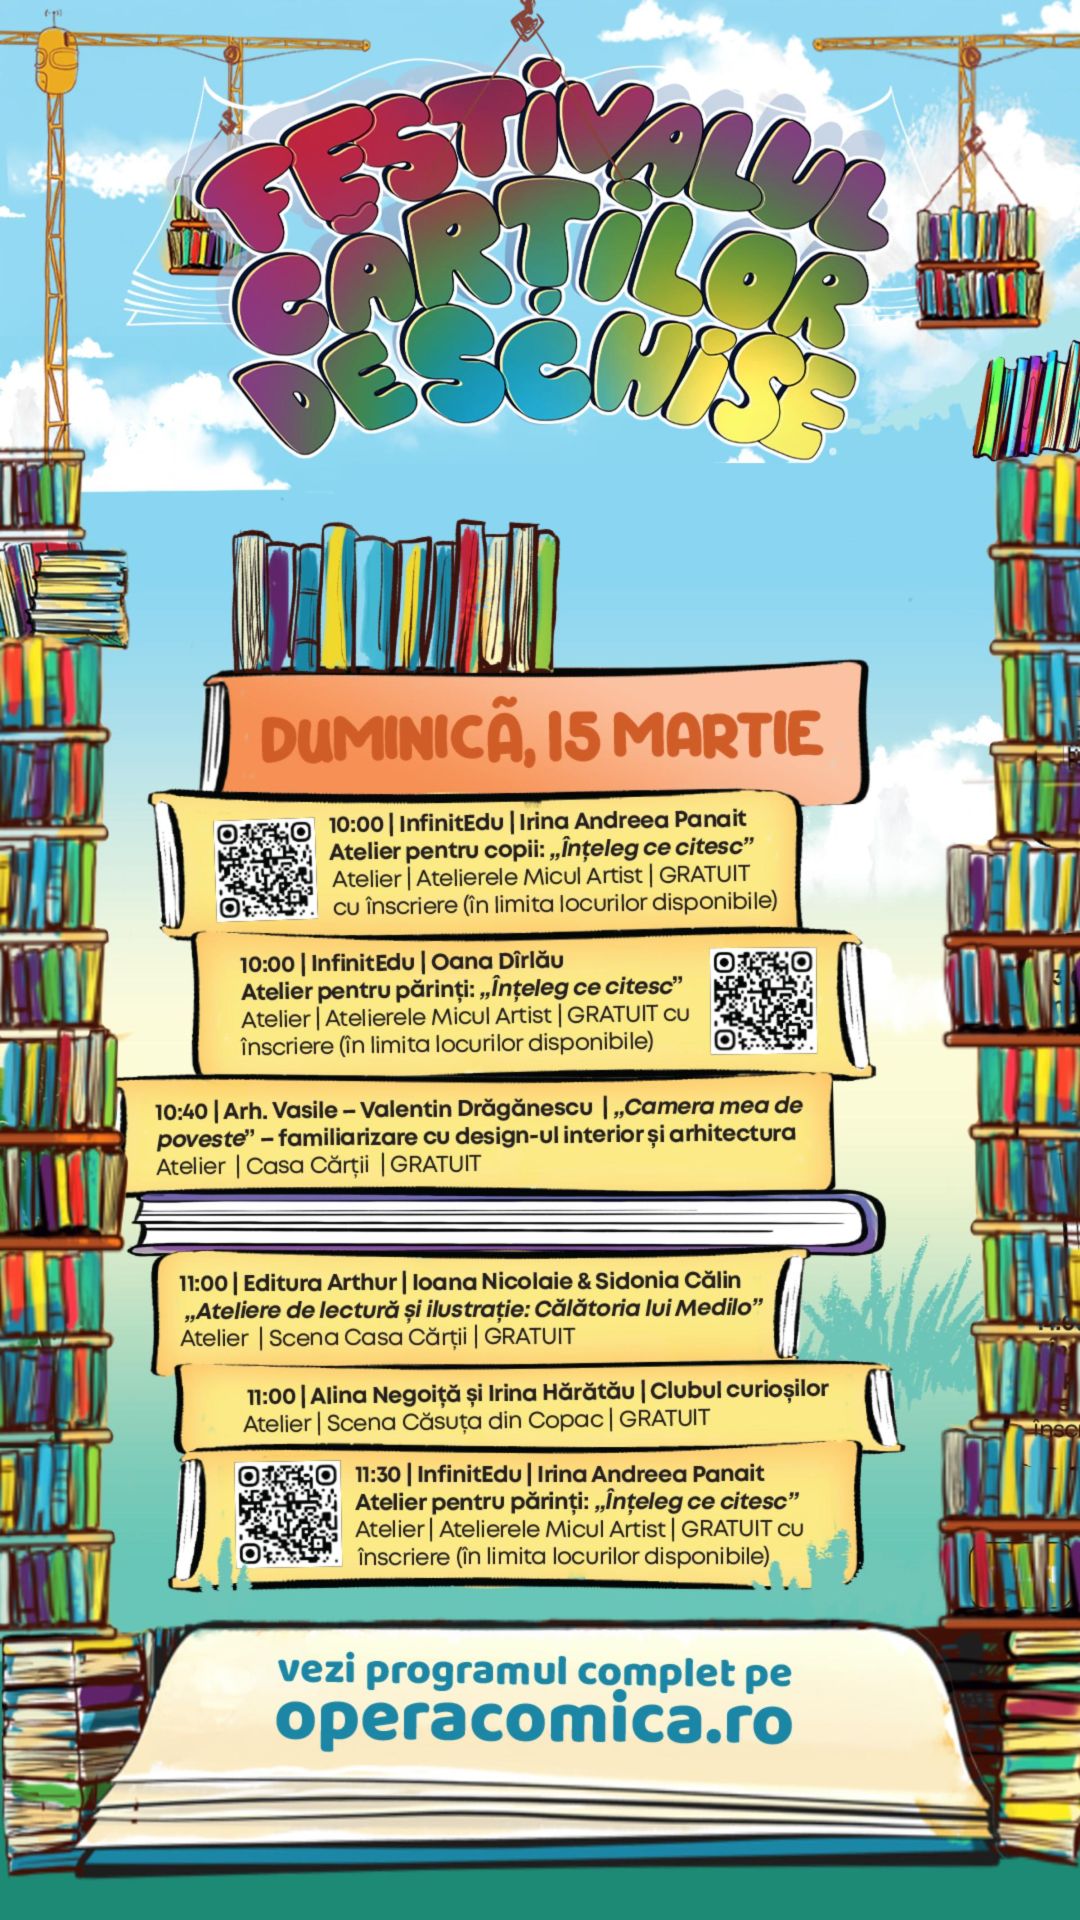 FESTIVALUL
CĂRȚILOR
DESCHISE
DUMINICĂ, 15 MARTIE
10:00 | InfinitEdu | Irina Andreea Panait
Atelier pentru copii: „Înțeleg ce citesc”
Atelier | Atelierele Micul Artist | GRATUIT
cu înscriere (în limita locurilor disponibile)
10:00 | InfinitEdu | Oana Dîrlău
Atelier pentru părinți: „Înțeleg ce citesc”
Atelier | Atelierele Micul Artist | GRATUIT cu
înscriere (în limita locurilor disponibile)
10:40 | Arh. Vasile – Valentin Drăgănescu | „Camera mea de
poveste” – familiarizare cu design-ul interior și arhitectura
Atelier | Casa Cărții | GRATUIT
11:00 | Editura Arthur | Ioana Nicolaie & Sidonia Călin
„Ateliere de lectură și ilustrație: Călătoria lui Medilo”
Atelier | Scena Casa Cărții | GRATUIT
11:00 | Alina Negoiță și Irina Hărătău | Clubul curioșilor
Atelier | Scena Căsuța din Copac | GRATUIT
11:30 | InfinitEdu | Irina Andreea Panait
Atelier pentru părinți: „Înțeleg ce citesc”
Atelier | Atelierele Micul Artist | GRATUIT cu
înscriere (în limita locurilor disponibile)
vezi programul complet pe
operacomica.ro